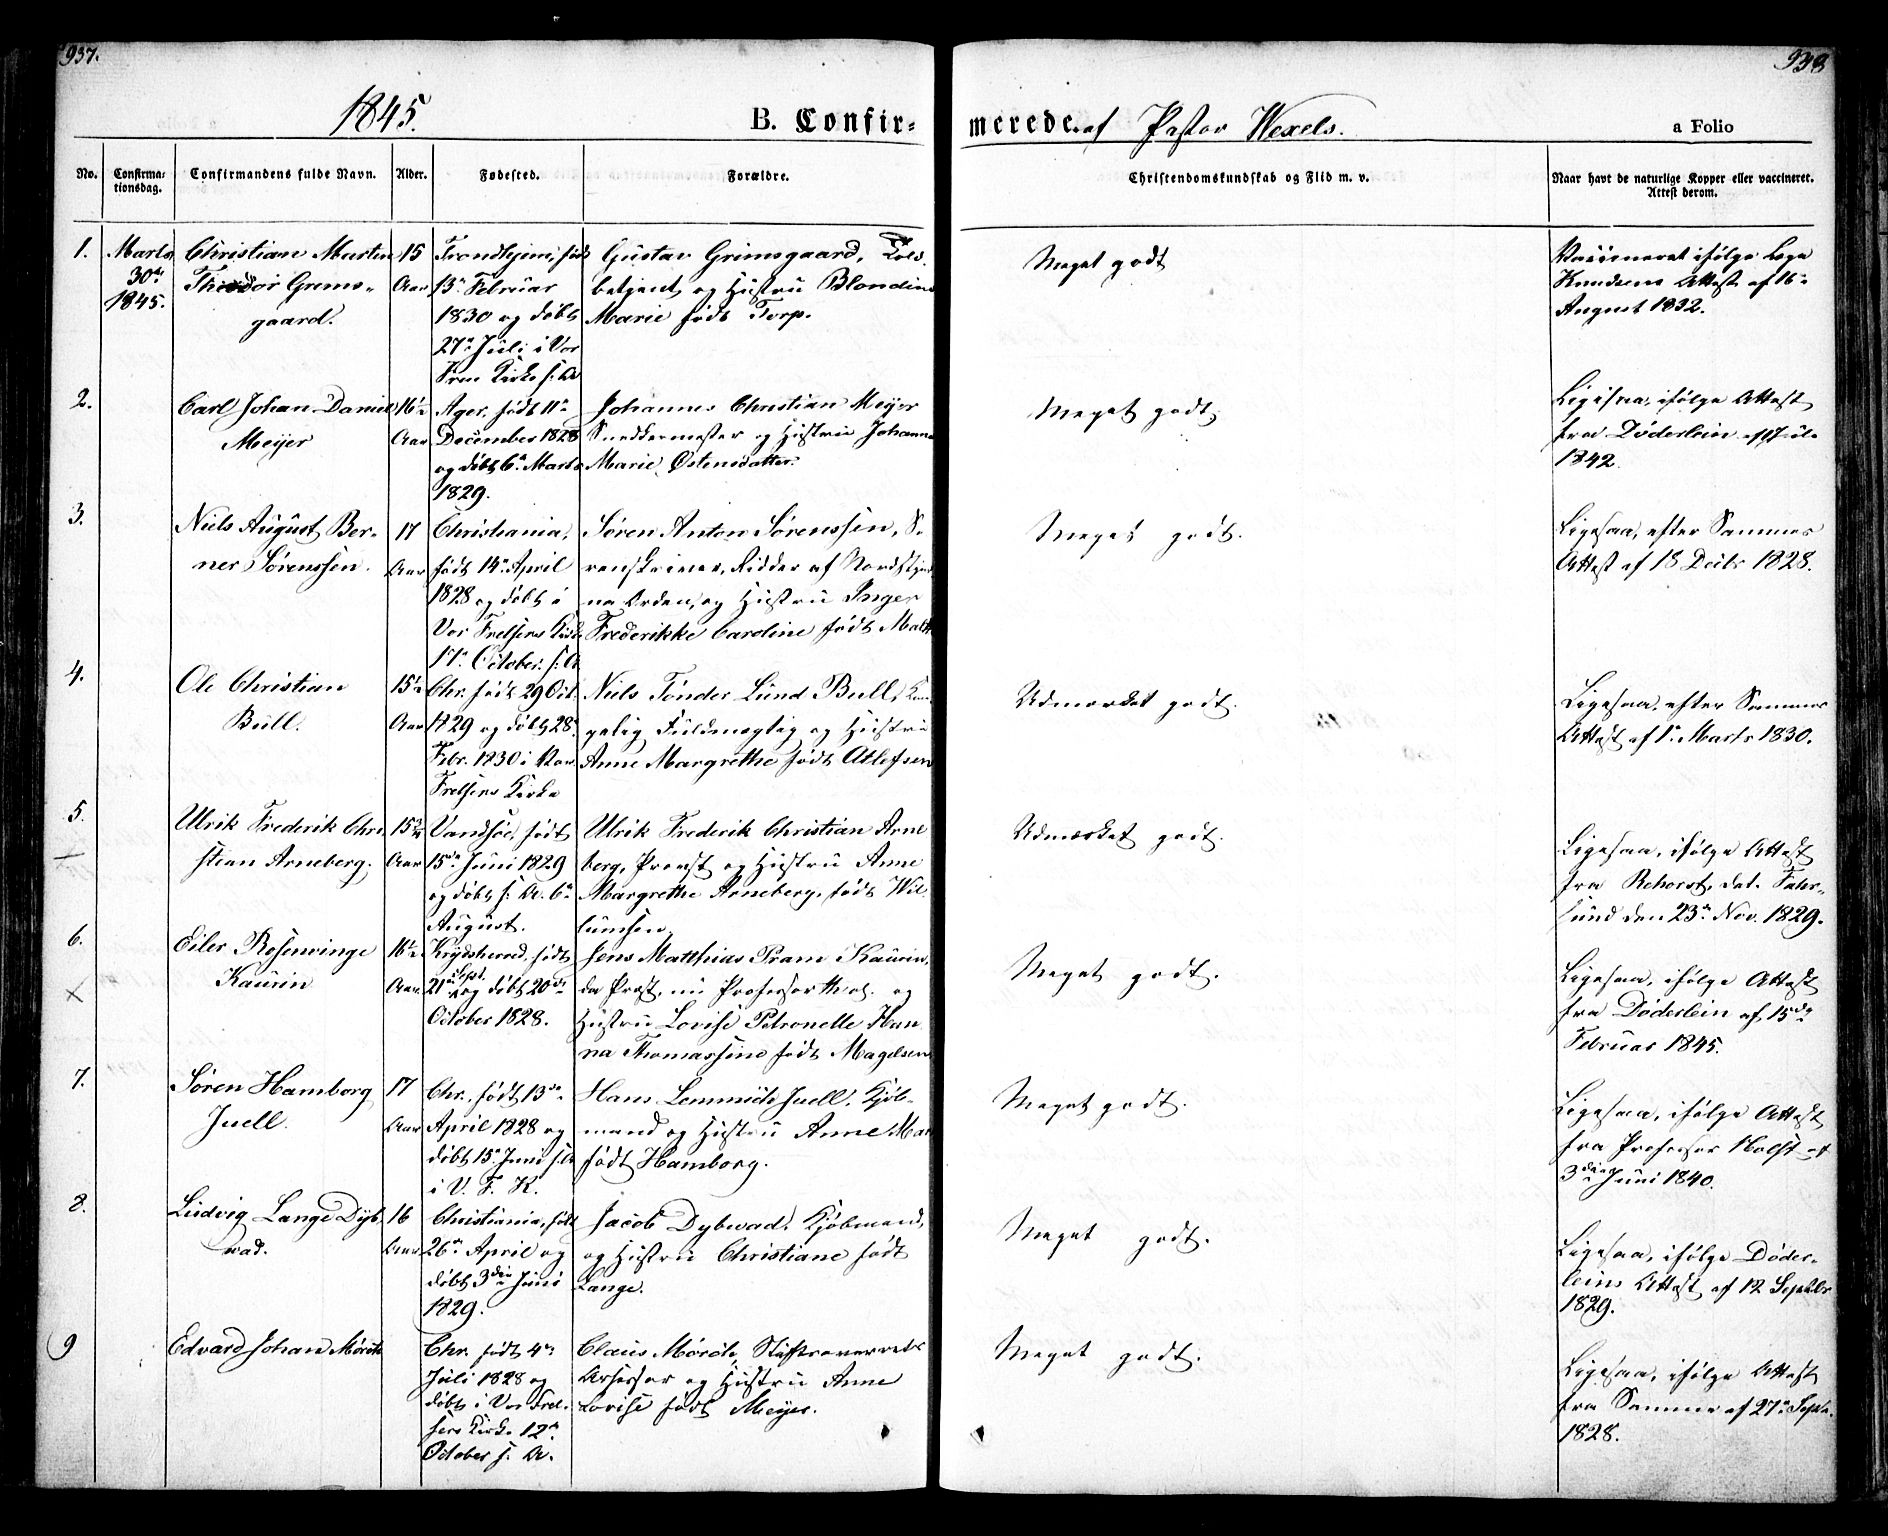 937.
938
1845.
B. Confir-
merede af Pastor Wexels.
a Folio
No.
Confirma-
tionsdag.
Confirmandens fulde Navn.
Alder.
Fødested.
Forældre.
Christendomskundskab og Flid m. v.
Naar havt de naturlige Kopper eller vaccineret.
Attest derom.
1.
Marts
30te
1845.
Christian Martin
Theodor Grims-
gaard.
15
Aar
Trondhjem, født
13de Februar
1830 og døbt
27de Juli i Vor
Frue Kirke s: A
Gustav Grimsgaard, Told
betjent og Hustru Blondine
Marie født Torp.
Meget godt
Vaccineret ifølge Læge
Knudsens Attest af 16de
August 1832.
2.
Carl Johan Daniel
Meyer
16½
Aar
Ager, født 11te
December 1828
og døbt 6te Marts
1829.
Johannes Christian Meyer
Snedkermester og Hustru Johanne
Marie Østensdatter.
Meget godt.
Ligesaa, ifølge Attest
fra Døderlein af
1842.
3.
Niels August Ber-
ner Sørenssen.
17
Aar
Christiania,
født 14de April
1828 og døbt i
Vor Frelsers Kirke
17de October s: A
Søren Anton Sørenssen, So-
renskriver, Ridder af Nordstjer
ne Orden, og Hustru Inger
Frederikke Caroline født Malt
Meget godt.
Ligesaa, efter Sammes
Attest af 18 Decbr 1828.
4.
Ole Christian
Bull.
15½
Aar
Chr. født 29 Oct.
1829 og døbt 28de
Febr. 1830 i Vor
Frelsers Kirke
Niels Tønder Lund Bull, Kon
gelig Fuldmægtig og Hustru
Anne Margrethe født Atlefsen
Udmærket godt.
Ligesaa, efter Sammes
Attest af 1ste Marts 1830.
5.
Ulrik Frederik Chri
stian Arneberg.
15¾
Aar
Vandsøe, født
15de Juni 1829
og døbt s: A. 6te
August.
Ulrik Frederik Christian Arne
berg, Provst og Hustru Anne
Margrethe Arneberg, født Wil
lumsen.
Udmærket godt.
Ligesaa, ifølge Attest
fra Rehorst, dat. Fahr-
sund den 23de Nov. 1829.
6.
X
Eiler Rosenvinge
Kaurin
16½
Aar
Krydsherred, født
21de Sept. og døbt 20de
October 1828.
Jens Matthias Pram Kaurin,
da Præst, nu Professor theol. og
Hustru Lovise Petronelle Han
na Thomassine født Magelsen
Meget godt.
Ligesaa, ifølge Attest
fra Døderlein af 15de
Februar 1845.
7.
Søren Hamborg
Juell.
17
Aar
Chr. født 13de
April 1828 og
døbt 15de Juni s: A
i V. F. K.
Hans Lemmich Juell, Kjøb-
mand og Hustru Anne Mar
født Hamborg.
Meget godt.
Ligesaa, ifølge Attest
fra Professor Holst af
3die Juni 1840.
8.
Ludvig Lange Dyb
wad.
16
Aar
Christiania, født
26de April og
døbt 3die Juni
1829.
Jacob Dybwad, Kjøbmand,
og Hustru Christiane født
Lange.
Meget godt.
Ligesaa, ifølge Døder-
leins Attest af 12 Septbr
1829.
9
Edvard Johan Mørch
Chr. født 4de
Juli 1828 og
døbt i Vor Frel-
sers Kirke 12te
October s: A.
Claus Mørch, Stiftsoverrets
Assessor og Hustru Anne
Lovise født Meyer.
Meget godt.
Ligesaa, ifølge Attest
fra Samme af 27de Septbr.
1828.